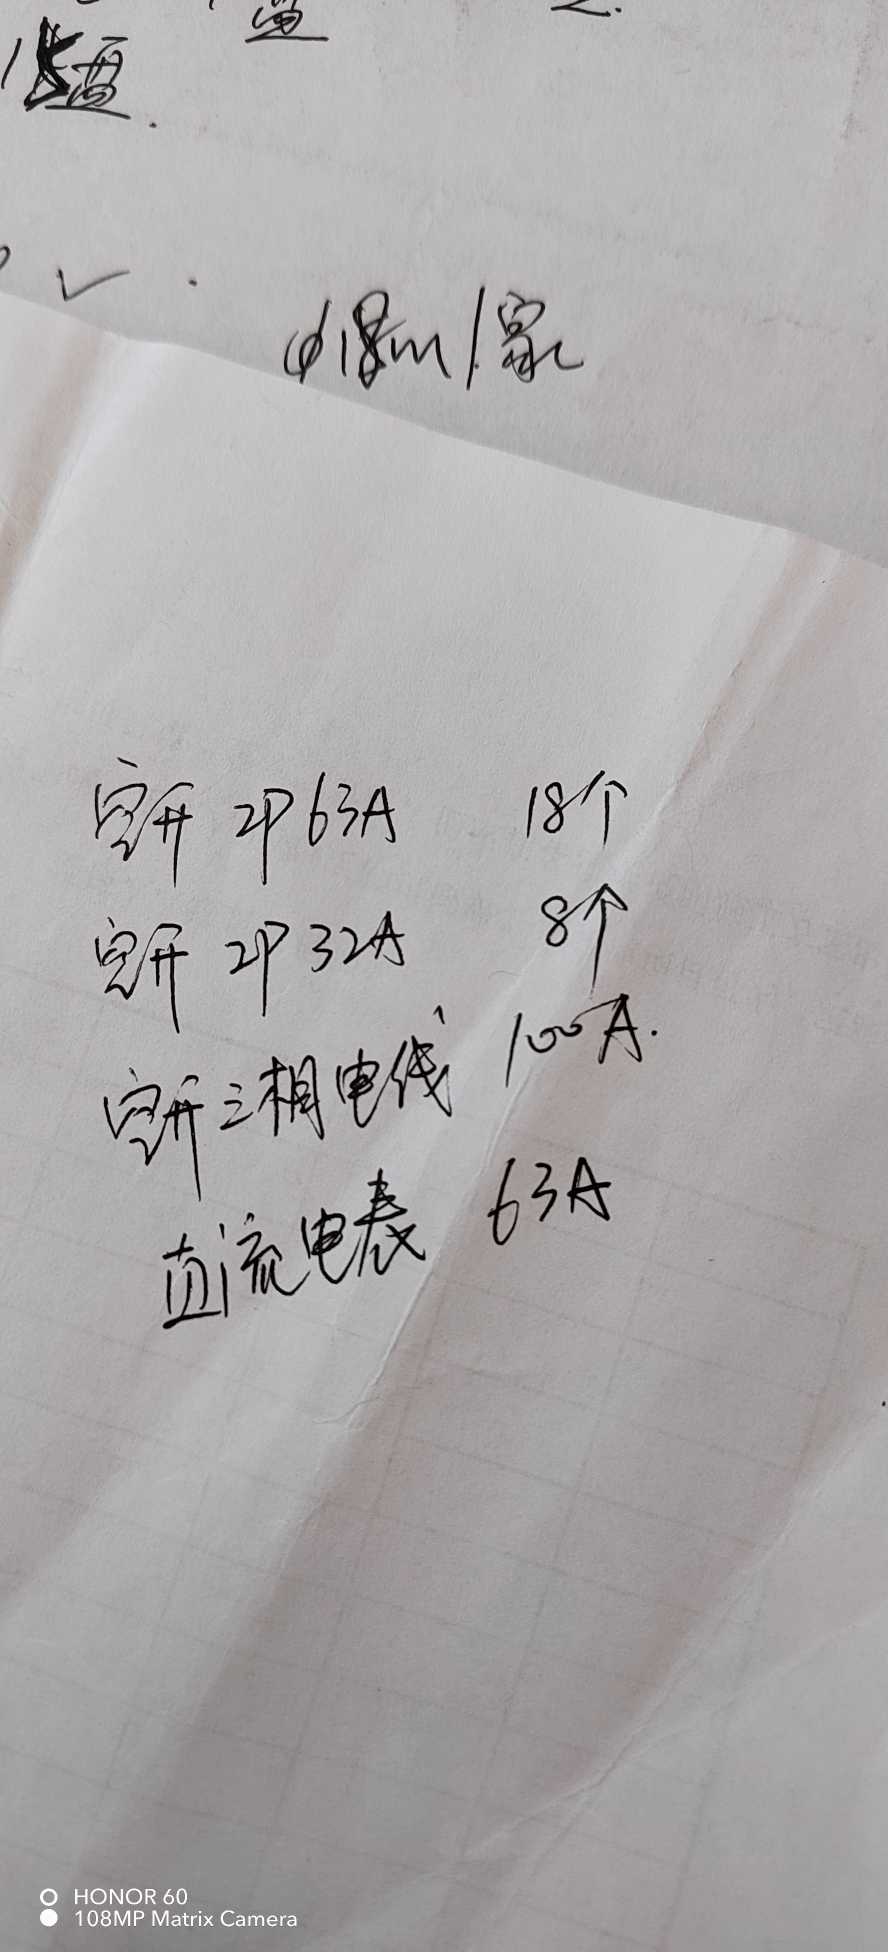 15盏.
空开 2P 63A 18个
空开 2P 32A 8个
空开三相电线 100A.
直流电表 63A
HONOR 60
108MP Matrix Camera